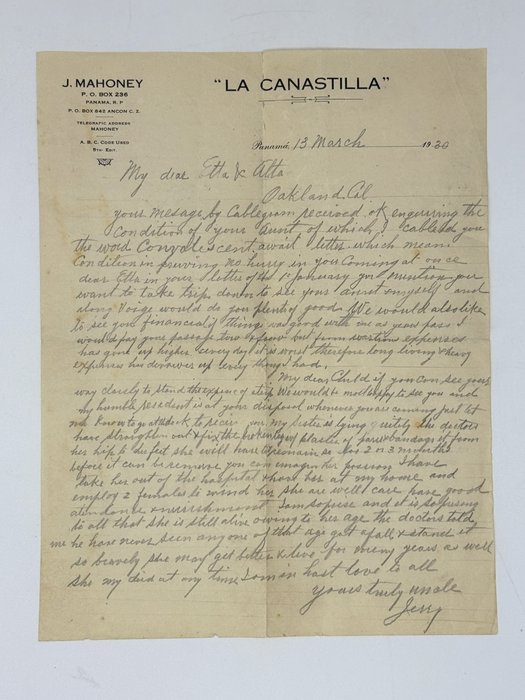 J. MAHONEY
P. O. BOX 236
PANAMA, R. P.
P. O. BOX 842 ANCON C. Z.
TELEGRAFIC ADDRESS
MAHONEY
A. B. C. CODE USED
5TH EDIT.
"LA CANASTILLA"
Panamá, 13 March 1930
My dear Etta & Alta
Oakland. Cal
your mesage by Cablegram received ok enquiring the
Condition of your aunt of which I cabled you
the word Convalescent await letter which mean
Condition in proving no hurry in you coming at once
dear Etta in your letter of the 1st January you mention you
want to take trip down to see your aunt & myself and
long voige would do you plenty of good We would also like
to see you financialy things was good with me as years pass I
would pay your passage too & fro but from expenses
has gone up higher every day it is most therefore long living & heavy
expenses has up every thing I had.
My dear Child if you can see your
way clearly to stand the expence of step We would be most happy to see you and
my humble resedent is at your disposal whenever you are coming just let
me know to your sister is lying quitly the doctors
have straighten out & fix the of plaster of paris & bandage it from
her hip to difeet she will have to remain so for 2 or 3 months
before it can be remove you can emagin her position I have
take her out of the hospital & have her at my home and
employ 2 females to mind her she are well care have good
atendance & nurishment I am soprise and it is soprising
to all that she is still alive owing to her age the doctors told
me he have never seen any one of that age got a fall & stand it
so bravely she may get better & live for meny years as well
she my died at my time I am in hast love to all
yours truly uncle
Jerry